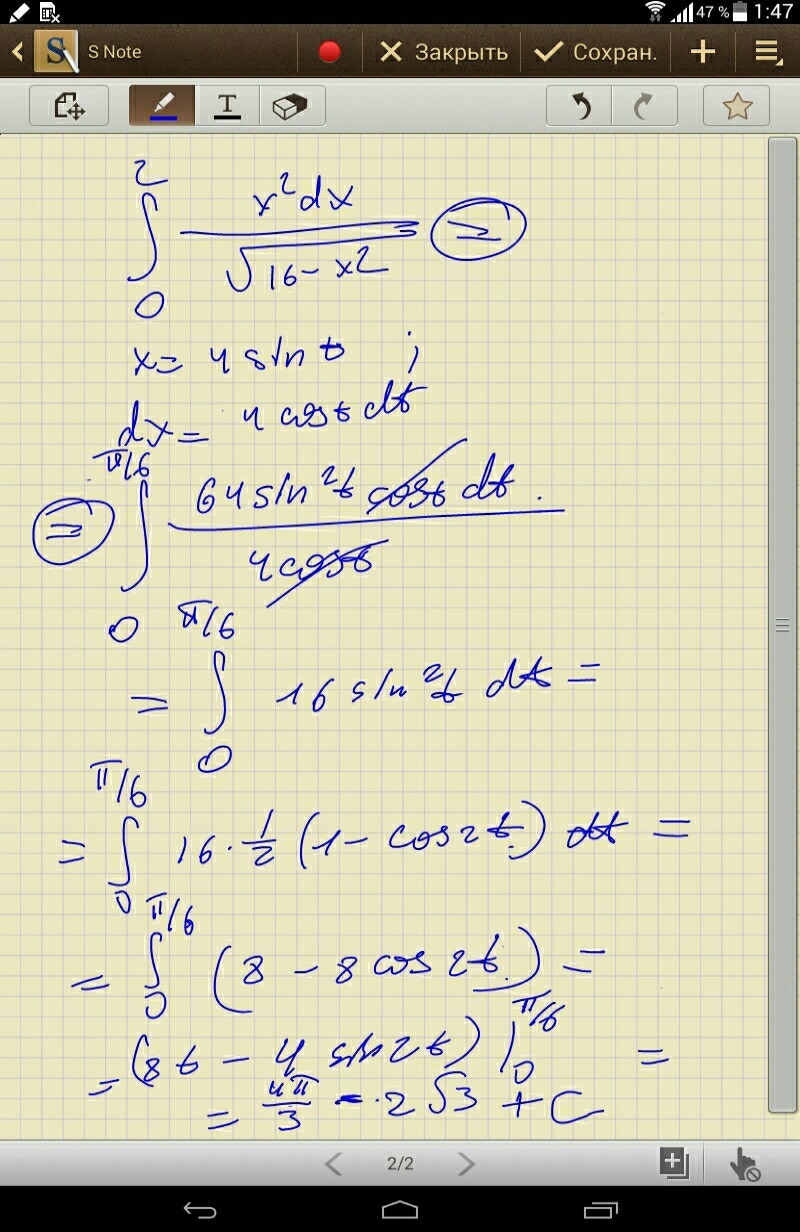 47 % 1:47
S Note Закрыть Сохран.
T
∫₀² x² dx / √(16 - x²) =
x = 4 sin t ;
dx = 4 cos t dt
= ∫₀^(π/6) 64 sin² t cos t dt / 4 cos t
= ∫₀^(π/6) 16 sin² t dt =
= ∫₀^(π/6) 16 · 1/2 (1 - cos 2t) dt =
= ∫₀^(π/6) (8 - 8 cos 2t) =
= (8t - 4 sin 2t) |₀^(π/6) =
= 4π/3 - 2√3 + C
2/2